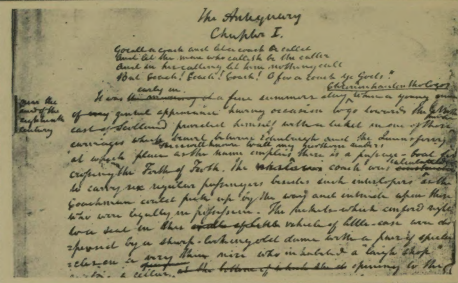 The Antiquary
Chapter I.
Go call a coach and let a coach be called
And let the man who calls it be the caller
And in his calling let him nothing call
But Coach! Coach! Coach! O for a Coach ye Gods!
Chrononhotonthologos
early in
near the end of the eighteenth century
It was a fine summers day when a young
of genteel appearance having occasion to go towards the North
east of Scotland provided himself with a ticket in one of those
carriages which travel between Edinburgh and the Queensferry
at which place as the name implies there is a passage boat for
crossing the Firth of Forth. The coach was calculated
to carry six regular passengers besides such interlopers as the
Coachman could pick up by the way and intrude upon those
who were legally in possession. The tickets which conferd right
to a seat in this vehicle of little ease were dis
-pensed by a sharp-looking old dame with a pair of specta
-cles on a very thin nose who inhabited a "laigh shop"
a cellar opening to the